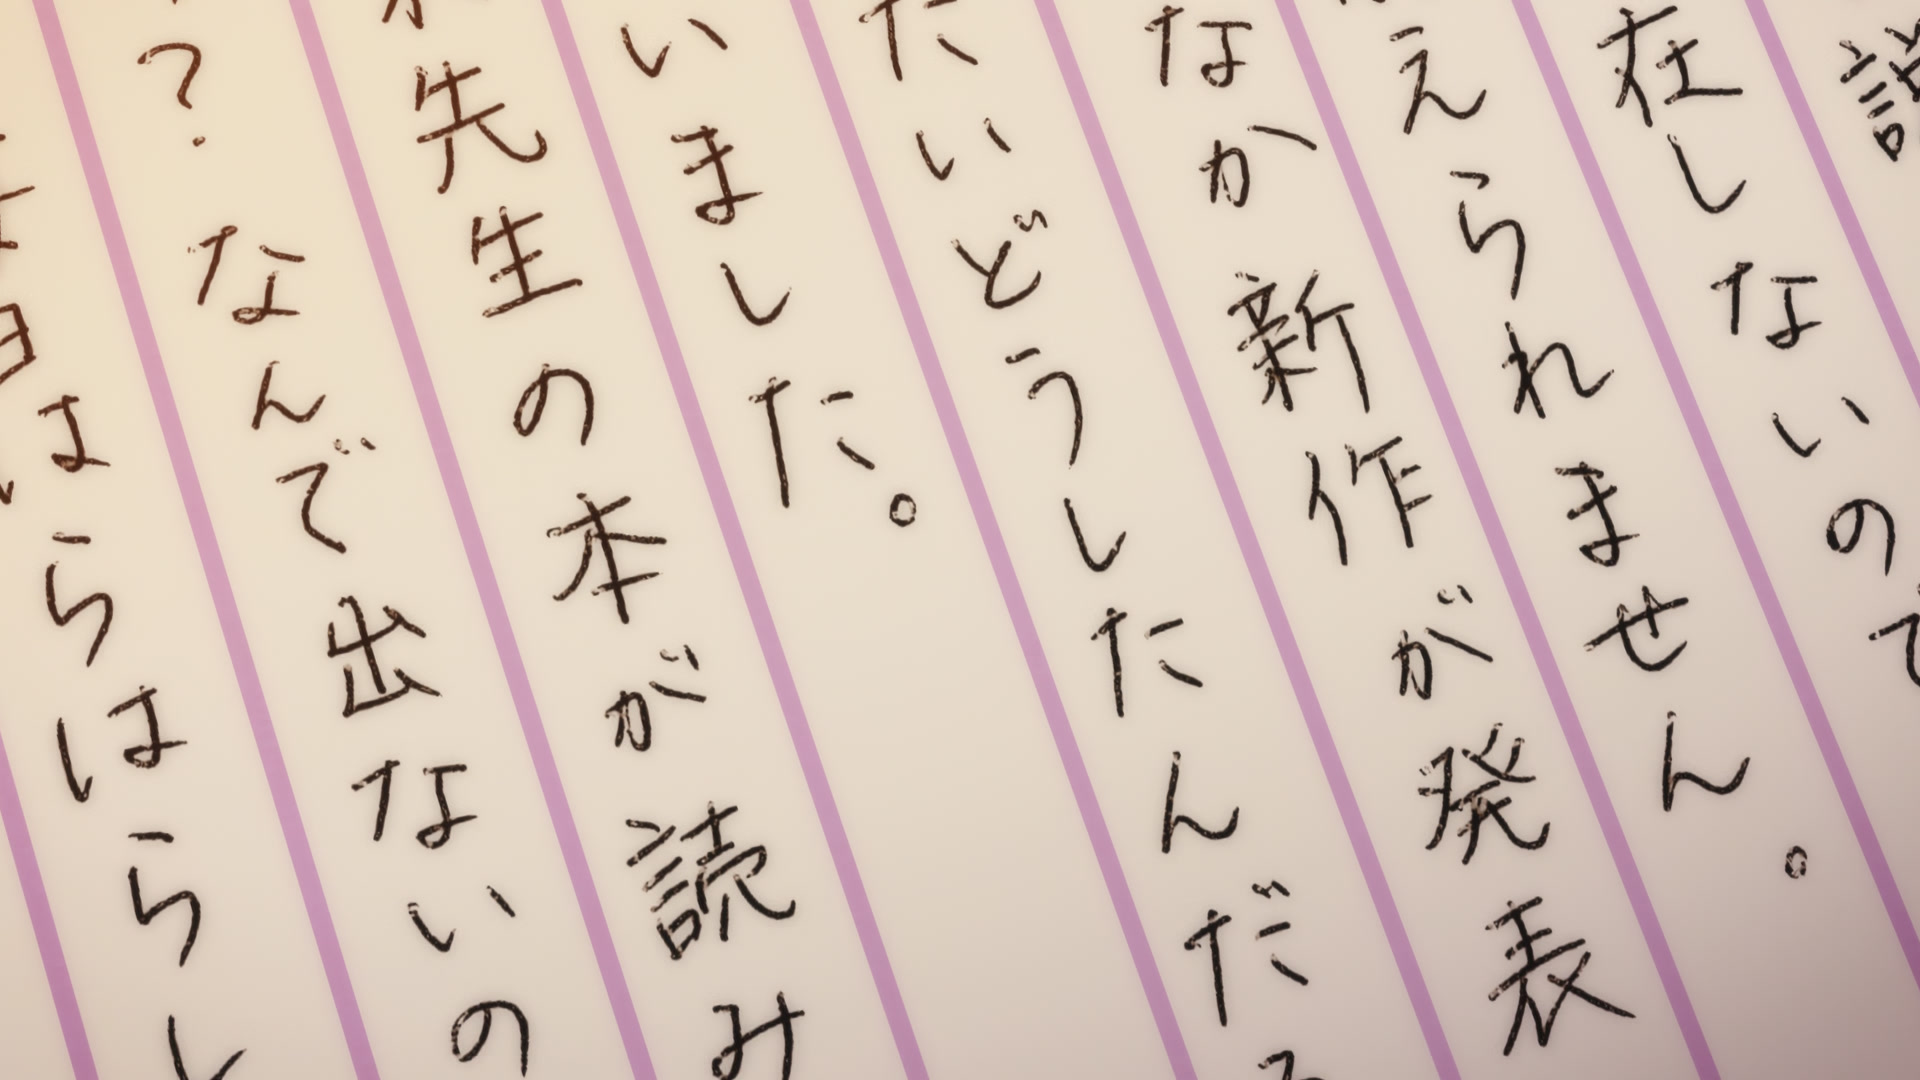 在しないので
えられません。
なか新作が発表
たいどうしたんだろ
いました。
先生の本が読み
？なんで出ないの
はらはらし